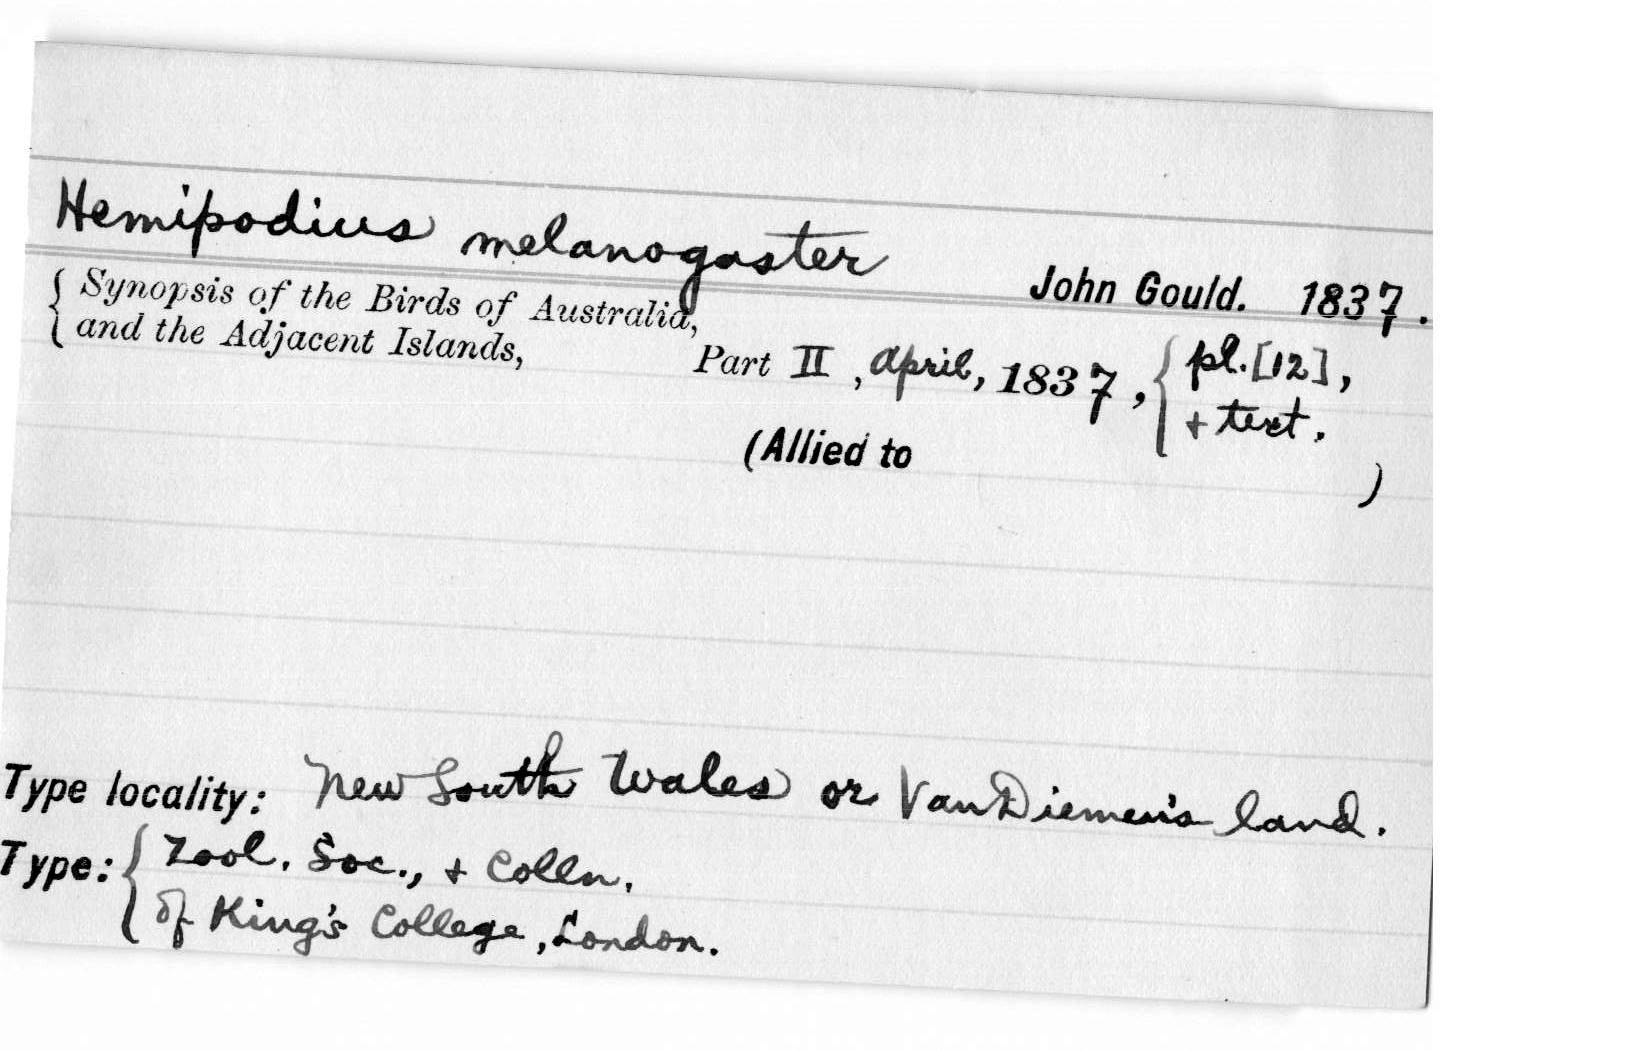 Hemipodius melanogaster John Gould. 1837.
{ Synopsis of the Birds of Australia,
and the Adjacent Islands, Part II, April, 1837, { pl. [12],
+ text.
(Allied to )
Type locality: New South Wales or Van Diemen's land.
Type: { Zool. Soc., + Colln.
of King's College, London.